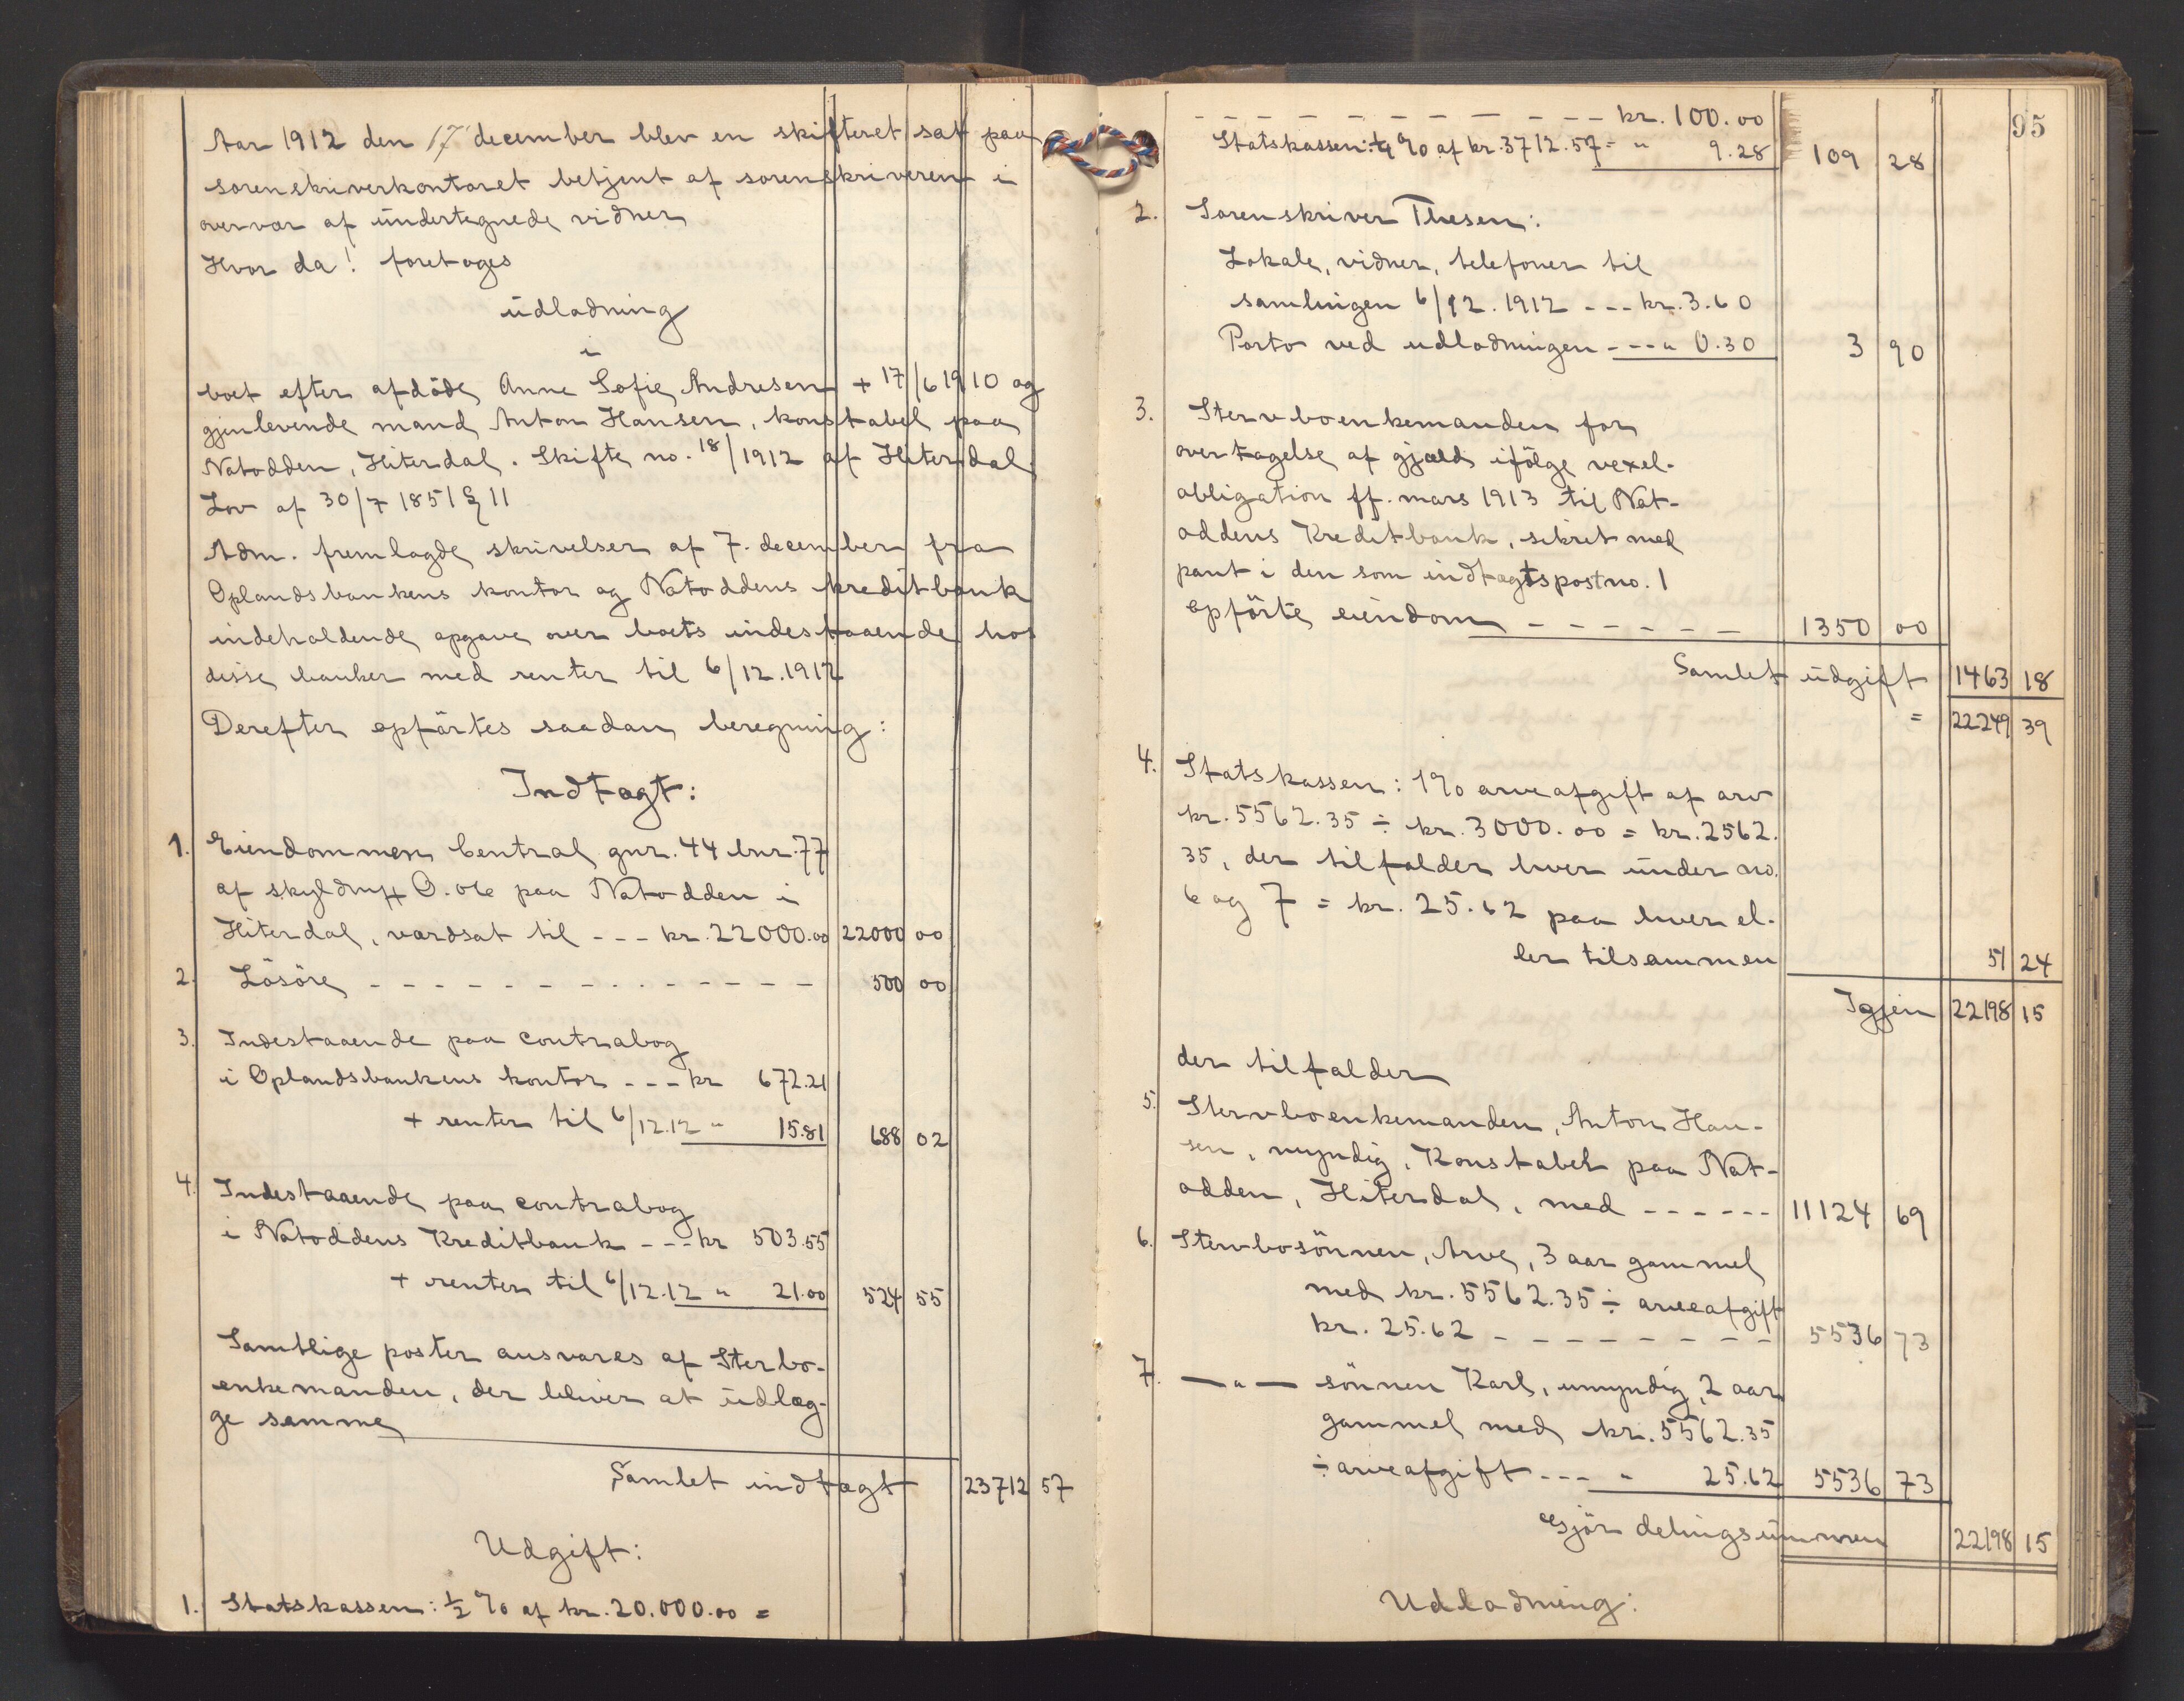 Aar 1912 den 17 december blev en skifteret sat paa
sorenskriverkontoret betjent af sorenskriveren i
overvær af undertegnede vidner
Hvor da! foretoges
udlodning
i
boet efter afdöde Anne Sofie Andresen + 17/6 1910 og
gjenlevende mand Anton Hansen, konstabel paa
Notodden, Hiterdal. Skifte no. 18/1912 af Hiterdal
Lov af 30/7 1851 § 11
Adm. fremlagde skrivelser af 7. december fra
Oplandsbankens kontor og Notoddens kreditbank
indeholdende opgave over boets indestaaende hos
disse banker med renter til 6/12.1912
Derefter opförtes saadan beregning:
Indtægt:
1. Eiendommen Central gnr. 44 bnr. 77
af skyldmrk 0.06 paa Notodden i
Hiterdal, værdsat til --- kr. 22000.00 22000 00
2. Lösöre - - - - - - - - - - - - - 500 00
3. Indestaaende paa contrabog
i Oplandsbankens kontor --- kr 672.21
+ renter til 6/12.12 " 15.81 688 02
4. Indestaaende paa contrabog
i Notoddens Kreditbank --- kr 503.55
+ renter til 6/12.12 " 21.00 524 55
Samtlige poster ansvares af Sterbo-
enkemanden, der bliver at udlæg-
ge samme
Samlet indtægt 23712 57
Udgift:
1. Statskassen: ½ % af kr. 20.000.00 =
95
- - - - - - - - - - - kr. 100.00
Statskassen: ¼ % af kr. 3712.57 = " 9.28 109 28
2. Sorenskriver Thesen:
Lokale, vidner, telefoner til
samlingen 6/12.1912 --- kr. 3.60
Porto ved udlodningen --- " 0.30 3 90
3. Stervboenkemanden for
overtagelse af gjæld ifölge vexel-
obligation ff. mars 1913 til Not-
oddens Kreditbank, sikret med
pant i den som indtægtspost no. 1
opförte eiendom - - - - - - 1350 00
Samlet udgift 1463 18
= 22249 39
4. Statskassen: 1% arveafgift af arv
kr. 5562.35 ÷ kr. 3000.00 = kr. 2562.
35, der tilfalder hver under no.
6 og 7 = kr. 25.62 paa hver el-
ler tilsammen 51 24
Igjen 22198 15
der tilfalder
5. Stervboenkemanden, Anton Han-
sen, myndig, Konstabel paa Not-
odden, Hiterdal, med - - - - - - 11124 69
6. Stervbosönnen, Arve, 3 aar gammel
med kr. 5562.35 ÷ arveafgift
kr. 25.62 - - - - - - - - 5536 73
7. — " — sönnen Karl, umyndig, 2 aar
gammel med kr. 5562.35
÷ arveafgift --- " 25.62 5536 73
Gjör delingsummen 22198 15
Udlodning: